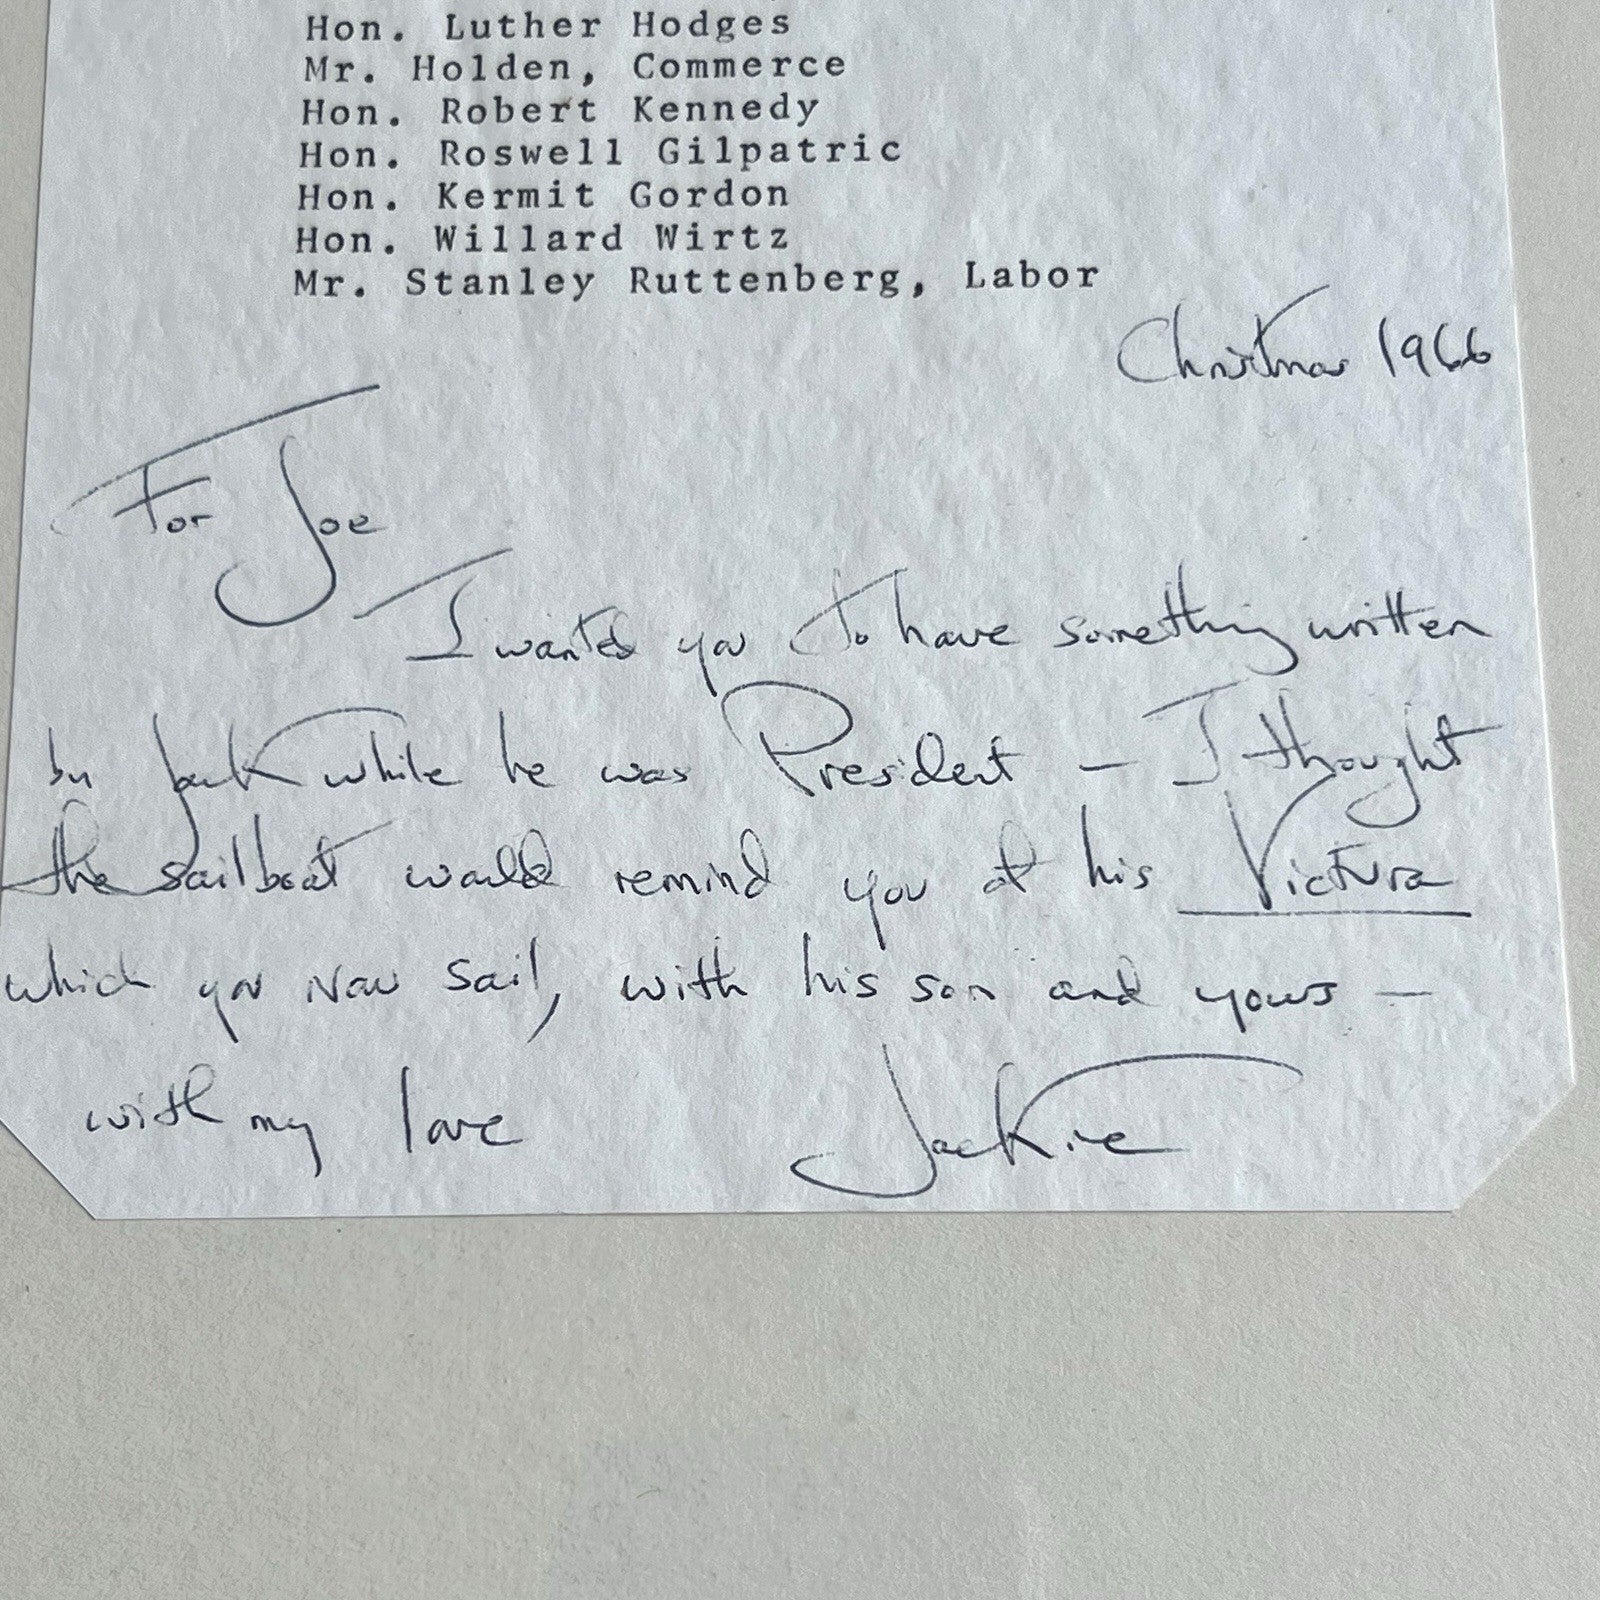 Hon. Luther Hodges
Mr. Holden, Commerce
Hon. Robert Kennedy
Hon. Roswell Gilpatric
Hon. Kermit Gordon
Hon. Willard Wirtz
Mr. Stanley Ruttenberg, Labor
Christmas 1966
For Joe
I wanted you to have something written
by Jack while he was President – I thought
the sailboat would remind you of his Victura
which you now sail, with his son and yours –
with my love Jackie